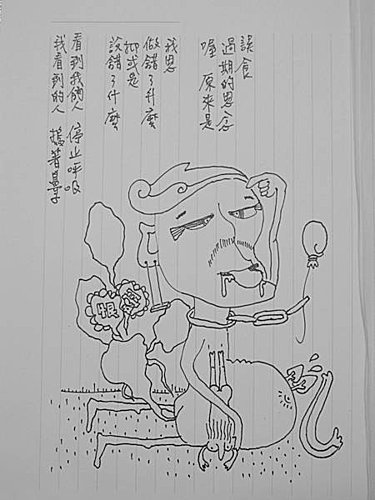 誤食
過期的思念
喔 原來是
我思
做錯了什麼
抑或是
說錯了什麼
看到我的人 停止呼吸
我看到的人 摀著鼻子
恨